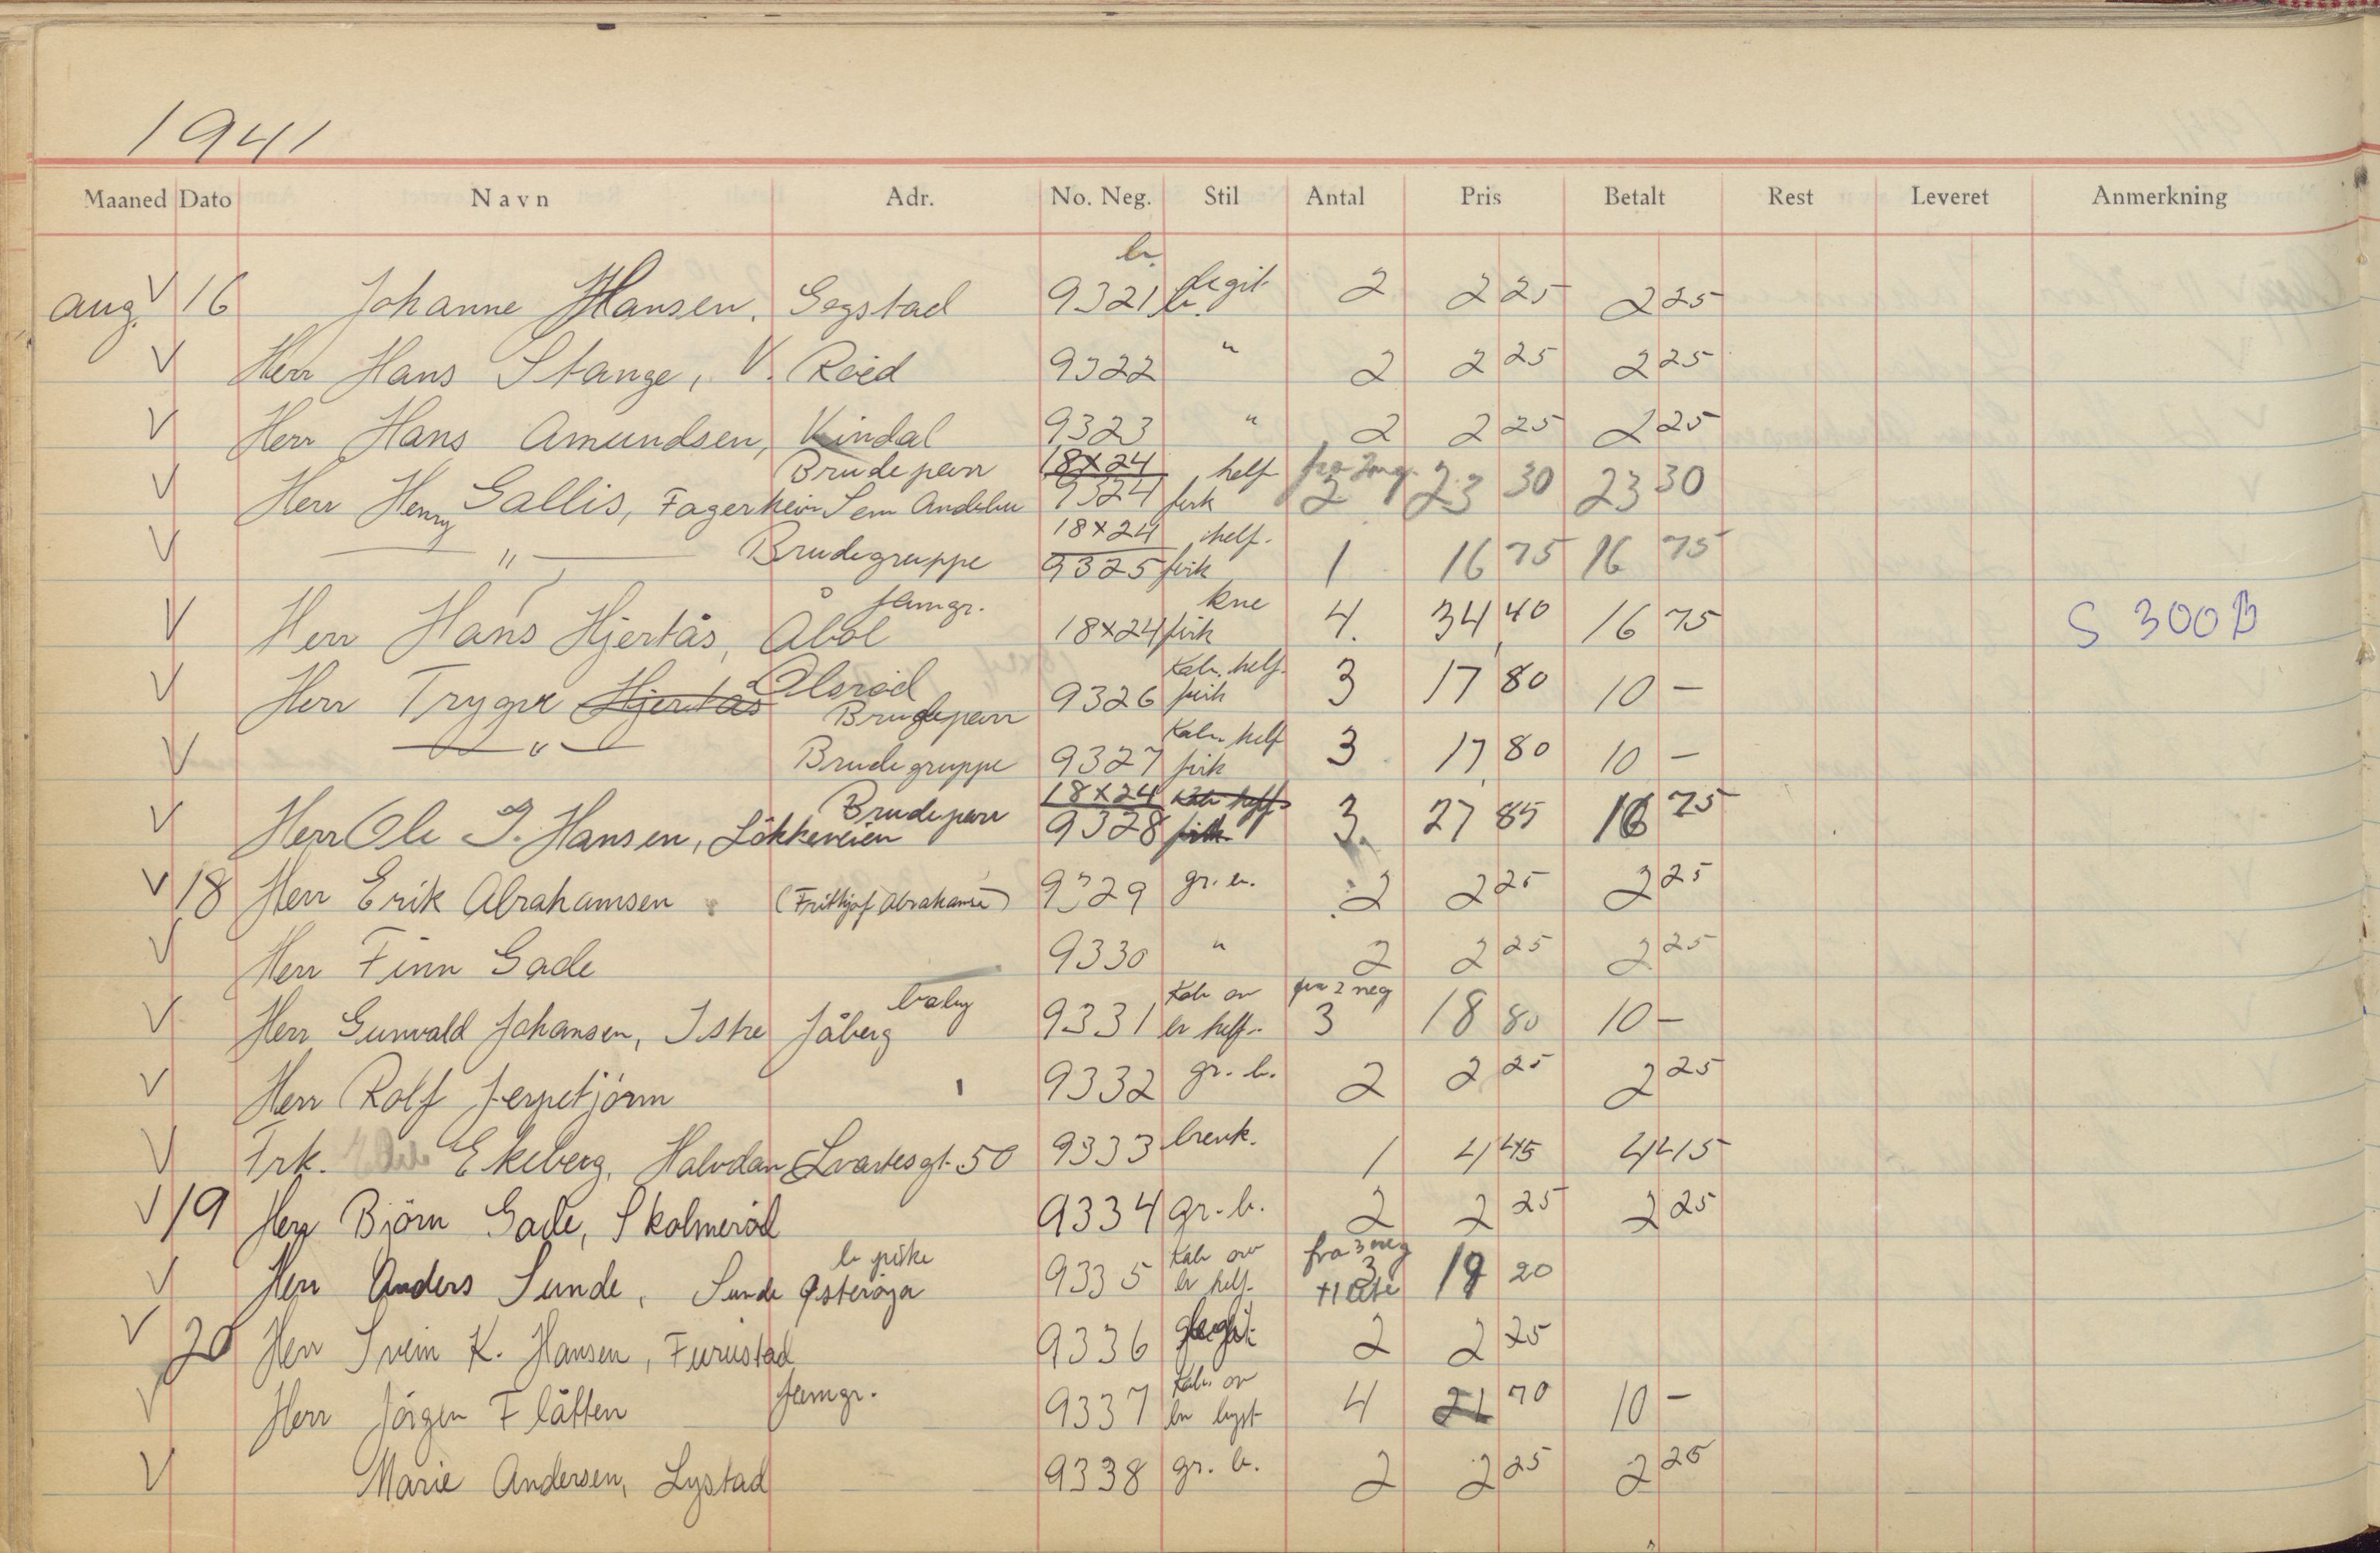 1941
Maaned Dato Navn Adr. No. Neg. Stil Antal Pris Betalt Rest Leveret Anmerkning
aug. V 16 Johanne Hansen, Gogstad 9321 b. legit 2 2 25 2 25
V Herr Hans Stange, V. Röed 9322 " 2 2 25 2 25
V Herr Hans Amundsen, Vindal 9323 " 2 2 25 2 25
Brudeparr 18x24 helf fra 2 neg.
V Herr Henry Gallis, Fagerheim Sem Andebu 9324 firk 2 23 30 23 30
V " Brudegruppe 18x24 helf.
9325 firk 1 16 75 16 75
famgr. kne
V Herr Hans Hjertås, Åbol 18x24 firk 4. 34 40 16 75 S 300B
Kab. helf.
V Herr Trygve Hjertås Olsröd 9326 firk 3 17 80 10 –
Brudeparr
V " Brudegruppe 9327 Kab helf firk 3 17 80 10 –
Brudeparr 18x24 Kab helf
V Herr Ole J. Hansen, Lökkeveien 9328 firk 3. 27 85 16 75
V 18 Herr Erik Abrahamsen (Frithjof Abrahamse) 9329 gr. b. 2 2 25 2 25
V Herr Finn Gade 9330 " 2 2 25 2 25
baby Kab ov fra 2 neg
V Herr Gunvald Johansen, Istre Jåberg 9331 br helf. 3 18 80 10 –
V Herr Rolf Jerpetjörm 9332 gr. b. 2 2 25 2 25
V Frk. Ekeberg, Halvdan Svartesgt. 50 9333 brevk. 1 4 45 4 45
V 19 Herr Björn Gade, Skolmeröd 9334 gr. b. 2 2 25 2 25
b pike Kab ov fra 3 neg
V Herr Anders Sunde, Sunde Østerøya 9335 br helf. 3 19 20
V 20 Herr Svein K. Hansen, Furustad 9336 2 2 25
famgr. Kab. ov
V Herr Jörgen Flåtten 9337 br byst 4 21 70 10 –
V Marie Andersen, Lystad 9338 gr. b. 2 2 25 2 25